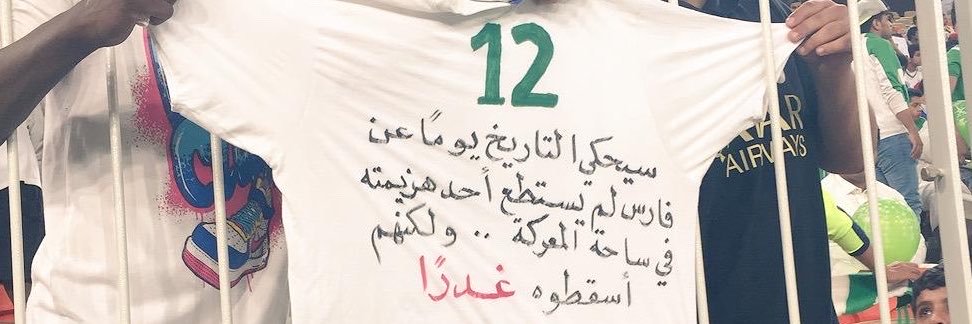 12
سيحكي التاريخ يومًا عن
فارس لم يستطع أحد هزيمته
في ساحة المعركة .. ولكنهم
أسقطوه غدرًا
AIRWAYS